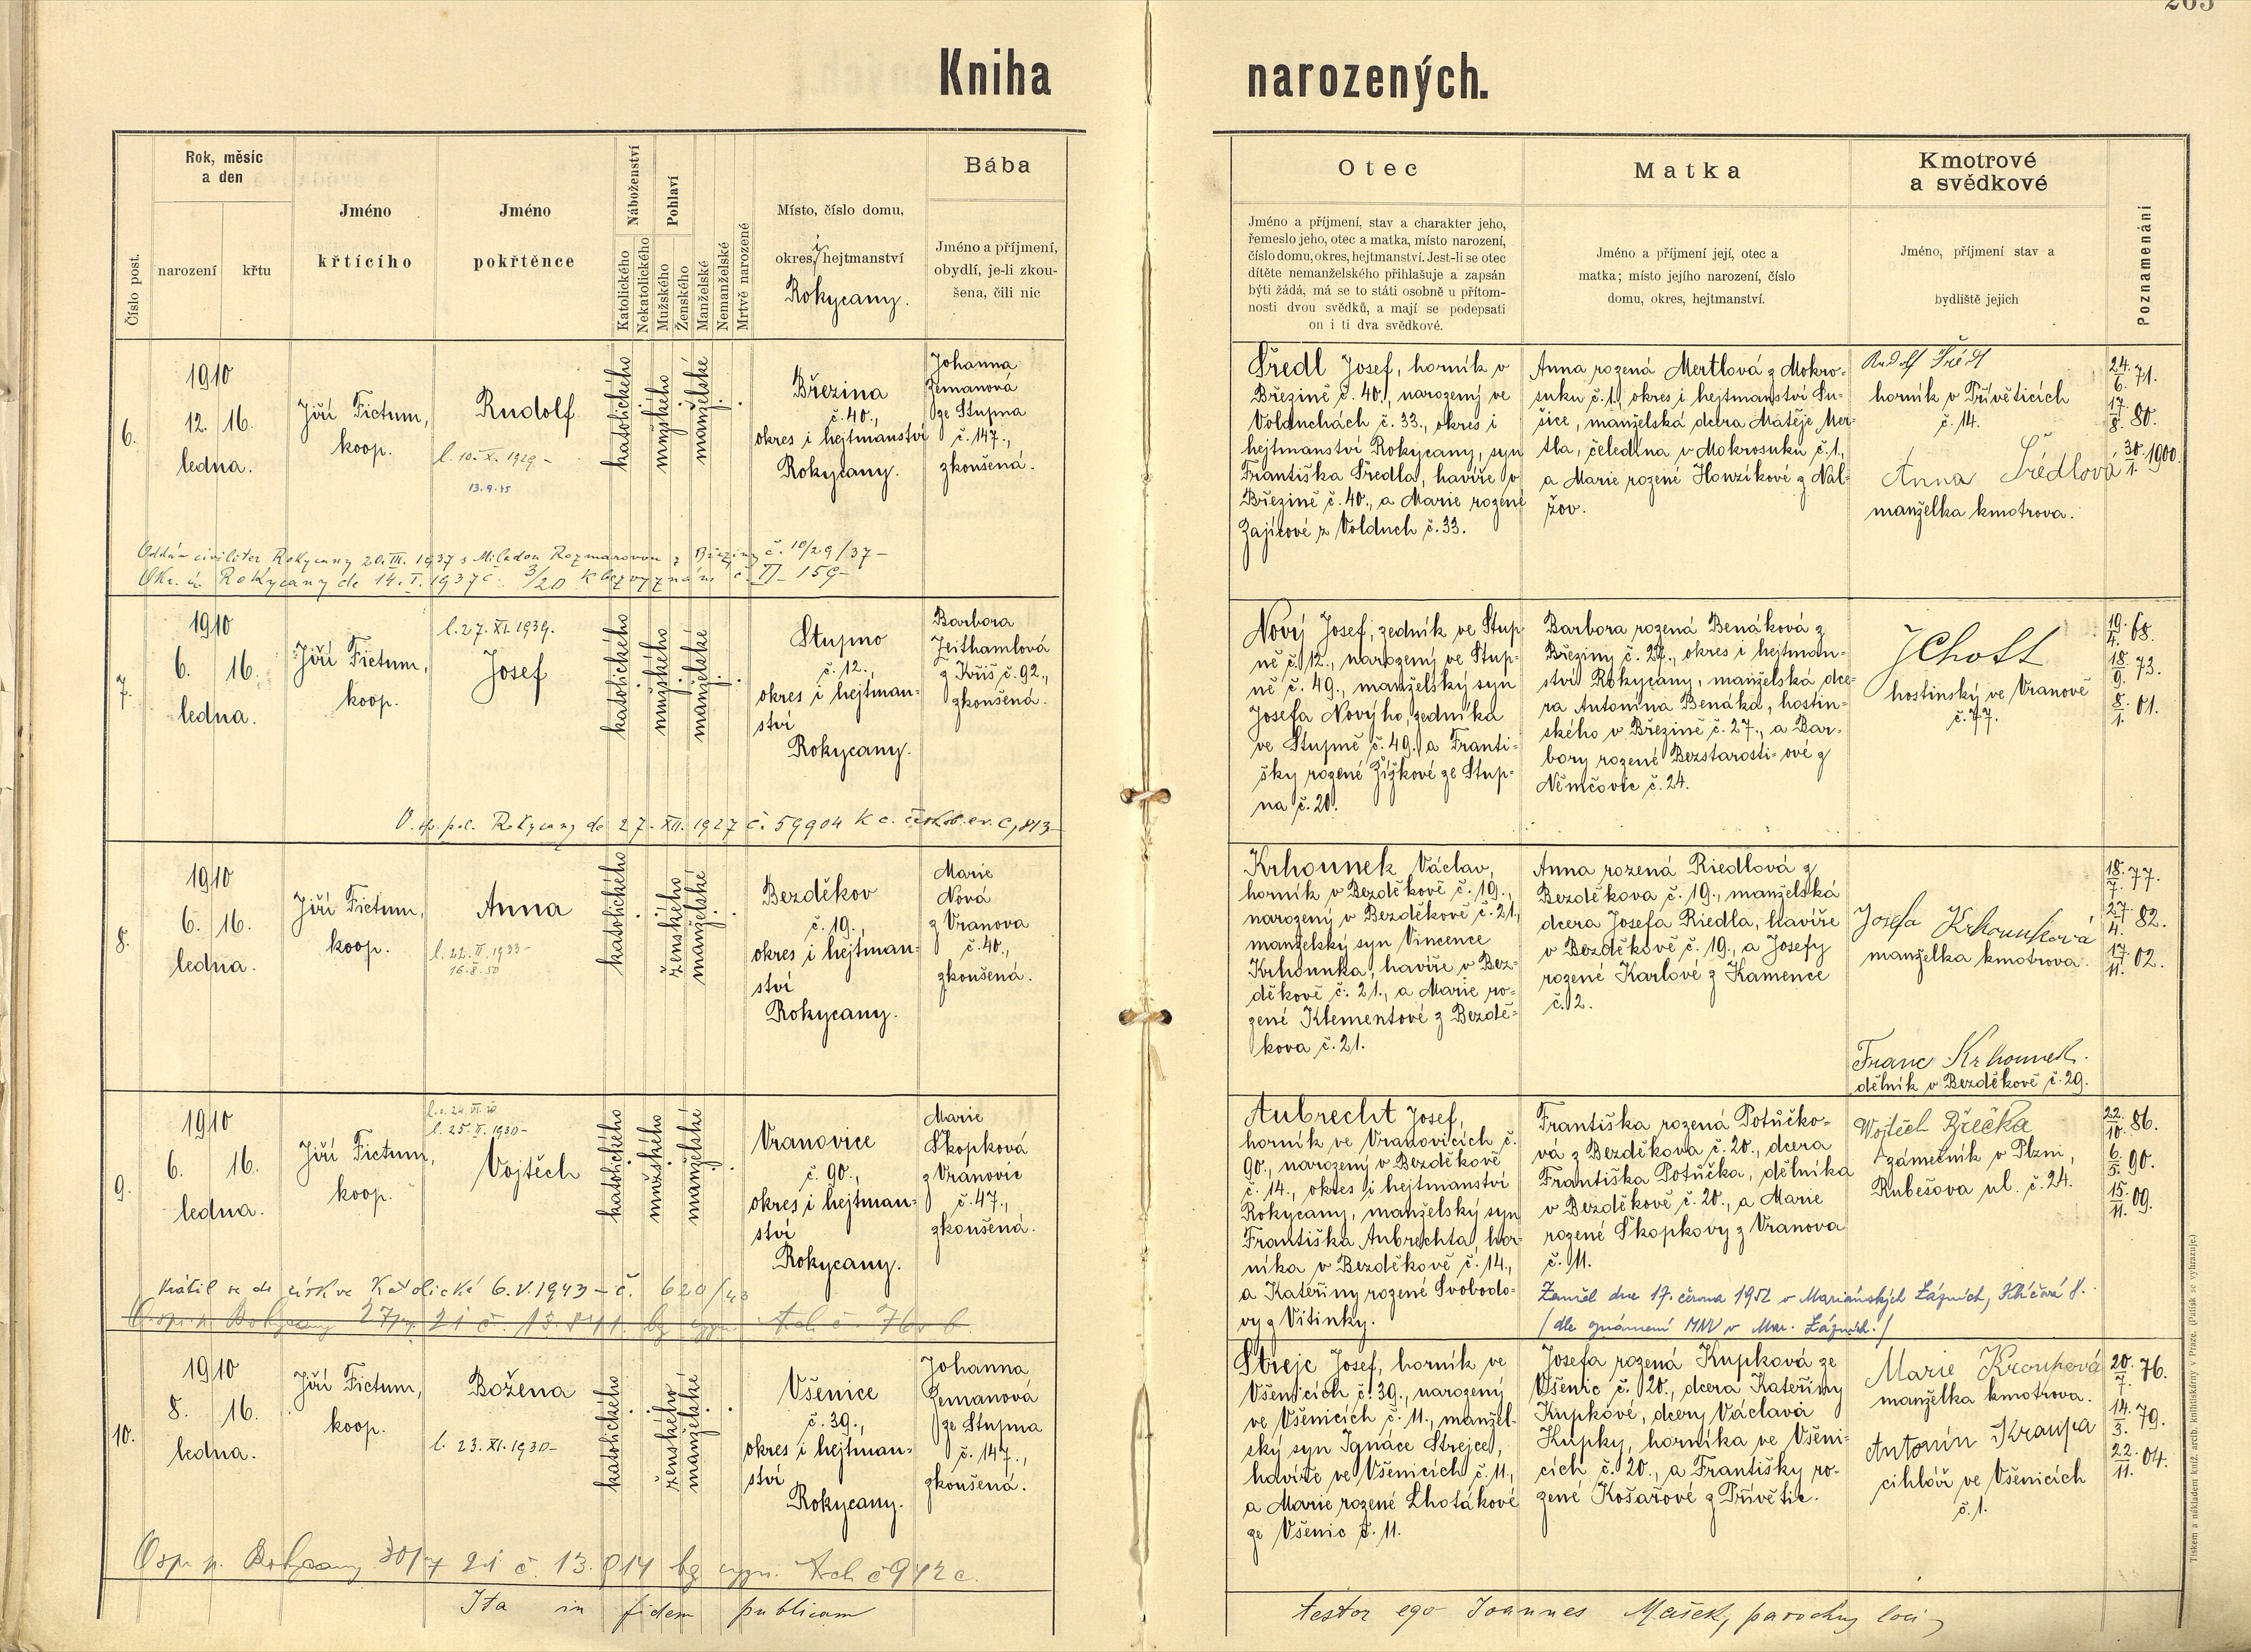 203
Kniha narozených.
Číslo post.
Rok, měsíc
a den
narození
křtu
Jméno
křtícího
Jméno
pokřtěnce
Náboženství
Katolického
Nekatolického
Pohlaví
Mužského
Ženského
Manželské
Nemanželské
Mrtvě narozené
Místo, číslo domu,
okres, i hejtmanství
Rokycany.
Bába
Jméno a příjmení,
obydlí, je-li zkou-
šena, čili nic
Otec
Jméno a příjmení, stav a charakter jeho,
řemeslo jeho, otec a matka, místo narození,
číslo domu, okres, hejtmanství. Jest-li se otec
dítěte nemanželského přihlašuje a zapsán
býti žádá, má se to státi osobně u přítom-
nosti dvou svědků, a mají se podepsati
on i ti dva svědkové.
Matka
Jméno a příjmení její, otec a
matka; místo jejího narození, číslo
domu, okres, hejtmanství.
Kmotrové
a svědkové
Jméno, příjmení stav a
bydliště jejich
Poznamenání
6.
1910
12. 16.
ledna.
Jiří Fictum,
koop.
Rudolf
l. 10. X. 1929 -
13.9.45
katolického
mužského
manželské
Březina
č. 40.,
okres i hejtmanství
Rokycany.
Johanna
Zemanová
ze Stupna
č. 147.,
zkoušená.
Oddán civiliter Rokycany 20.III.1937 s Miladou Rozmarovou z Březiny č. 10/29/37 -
Okr. ú. Rokycany de 14.I.1937 č. 3/20 k bezvyznání č. II - 159 -
Šředl Josef, horník v
Březině č. 40., narozený ve
Volduchách č. 33., okres i
hejtmanství Rokycany, syn
Františka Šředla, havíře v
Březině č. 40., a Marie rozené
Zajícové z Volduch č. 33.
Anna rozená Mertlová z Mokro-
suku č. 1., okres i hejtmanství Su-
šice, manželská dcera Matěje Mer-
tla, čeledína v Mokrosuku č. 1.,
a Marie rozené Honzíkové z Nal-
žov.
Rudolf Šrédl
horník v Přívěticích
č. 14.
Anna Šrédlová
manželka kmotrova.
24./6. 71.
17./8. 80.
30./1. 1900.
7.
1910
6. 16.
ledna.
Jiří Fictum,
koop.
l. 27. XI. 1939.
Josef
katolického
mužského
manželské
Stupno
č. 12.,
okres i hejtman-
ství
Rokycany.
Barbora
Zeithamlová
z Kříš č. 92.,
zkoušená.
O. sp. pol. Rokycany de 27. XII. 1927 č. 59904 k c. českob. ev. C, 813 -
Nový Josef, zedník ve Stup-
ně č. 12., narozený ve Stup-
ně č. 49., manželský syn
Josefa Nového, zedníka
ve Stupně č. 49., a Franti-
šky rozené Žižkové ze Stup-
na č. 20.
Barbora rozená Benáková z
Březiny č. 27., okres i hejtman-
ství Rokycany, manželská dce-
ra Antonína Benáka, hostin-
ského v Březině č. 27., a Bar-
bory rozené Bezstarosti-ové z
Němčovic č. 24.
hostinský ve Vranově
č. 77.
19./4. 68.
18./9. 73.
8./1. 01.
8.
1910
6. 16.
ledna.
Jiří Fictum,
koop.
Anna
l. 22. II. 1933 -
16.8.50
katolického
ženského
manželské
Bezděkov
č. 19.,
okres i hejtman-
ství
Rokycany.
Marie
Nová
z Vranova
č. 40.,
zkoušená.
Krhounek Václav,
horník v Bezděkově č. 19.,
narozený v Bezděkově č. 21.,
manželský syn Vincence
Krhounka, havíře v Bez-
děkově č. 21., a Marie ro-
zené Klementové z Bezdě-
kova č. 21.
Anna rozená Riedlová z
Bezděkova č. 19., manželská
dcera Josefa Riedla, havíře
v Bezděkově č. 19., a Josefy
rozené Karlové z Kamence
č. 2.
Josefa Krhounková
manželka kmotrova.
Franc Krhounek.
dělník v Bezděkově č. 29.
18./7. 77.
27./4. 82.
17./11. 02.
9.
1910
6. 16.
ledna.
Jiří Fictum,
koop.
l. 25. II. 1930 -
Vojtěch
katolického
mužského
manželské
Vranovice
č. 90.,
okres i hejtman-
ství
Rokycany.
Marie
Skopková
z Vranovic
č. 47.,
zkoušená.
Vrátil se do církve Katolické 6.V.1943 - č. 620/43
Aubrecht Josef,
horník ve Vranovicích č.
90., narozený v Bezděkově
č. 14., okres i hejtmanství
Rokycany, manželský syn
Františka Aubrechta, hor-
níka v Bezděkově č. 14.,
a Kateřiny rozené Svobodo-
vy z Vitinky.
Františka rozená Potůčko-
vá z Bezděkova č. 20., dcera
Františka Potůčka, dělníka
v Bezděkově č. 20., a Marie
rozené Skopkovy z Vranova
č. 11.
Zemřel dne 17. června 1952 v Mariánských Lázních, Klíčová 8.
/dle oznámení MNV v Mar. Lázních./
Wojtěch Břečka
zámečník v Plzni,
Rubešova ul. č. 24.
22./10. 86.
6./5. 90.
15./11. 09.
10.
1910
8. 16.
ledna.
Jiří Fictum,
koop.
Božena
l. 23. XI. 1930 -
katolického
ženského
manželské
Všenice
č. 39.,
okres i hejtman-
ství
Rokycany.
Johanna
Zemanová
ze Stupna
č. 147.,
zkoušená.
Osp. p. Rokycany 30/7 21 č. 13.814 bg vyzn. Arch č 942 c.
Strejc Josef, horník ve
Všenicích č. 39., narozený
ve Všenicích č. 11., manžel-
ský syn Ignáce Strejce,
havíře ve Všenicích č. 11.,
a Marie rozené Lhotákové
ze Všenic č. 11.
Josefa rozená Kupková ze
Všenic č. 20., dcera Kateřiny
Kupkové, dcery Václava
Kupky, horníka ve Všeni-
cích č. 20., a Františky ro-
zené Košařové z Přívětic.
Marie Kroupová
manželka kmotrova.
Antonín Kraupa
cihlář ve Všenicích
č. 1.
20./7. 76.
14./3. 79.
22./11. 04.
Ita in fidem publicam
testor ego Joannes Mašek, parochus loci
Tiskem a nákladem kníž. arcib. knihtiskárny v Praze. (Patisk se vyhrazuje.)